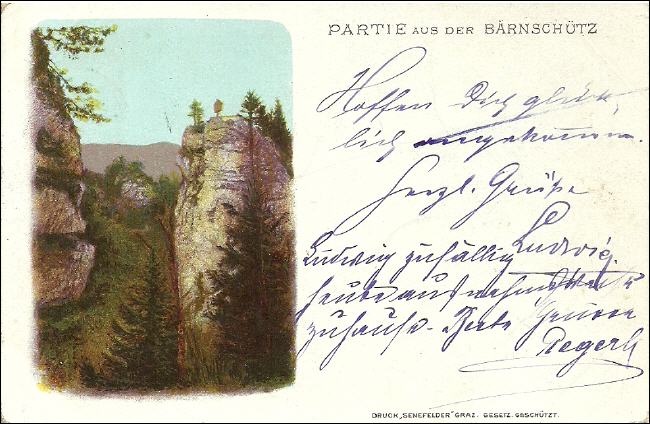 PARTIE AUS DER BÄRNSCHÜTZ
Hoffen Dich glück-
lich angekommen.
Herzl. Grüße
Ludwig
Ludwig zufällig
heute
zuhause -
DRUCK „SENEFELDER“ GRAZ. GESETZ. GESCHÜTZT.